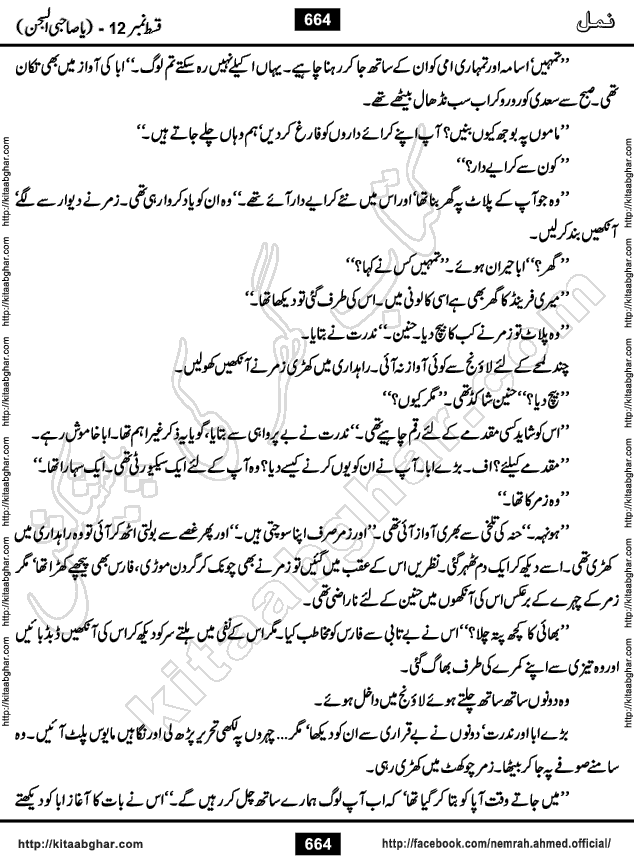 نمل
664
قسط نمبر 12 - (یا صاحبی السجن)
’’تمہیں‘ اسامہ اور تمہاری امی کو ان کے ساتھ جا کر رہنا چاہیے۔ یہاں اکیلے نہیں رہ سکتے تم لوگ۔‘‘ ابا کی آواز میں بھی تکان
تھی۔ صبح سے سعدی کو رو رو کر اب سب نڈھال بیٹھے تھے۔
’’ماموں پہ بوجھ کیوں بنیں؟ آپ اپنے کرائے داروں کو فارغ کر دیں‘ ہم وہاں چلے جاتے ہیں۔‘‘
’’کون سے کرایے دار؟‘‘
’’وہ جو آپ کے پلاٹ پہ گھر بنا تھا‘ اور اس میں نئے کرایے دار آئے تھے۔‘‘ وہ ان کو یاد کروا رہی تھی۔ زمر نے دیوار سے لگے‘
آنکھیں بند کر لیں۔
’’گھر؟‘‘ ابا حیران ہوئے۔ ’’تمہیں کس نے کہا؟‘‘
’’میری فرینڈ کا گھر بھی ہے اسی کالونی میں۔ اس کی طرف گئی تو دیکھا تھا۔‘‘
’’وہ پلاٹ تو زمر نے کب کا بیچ دیا۔ حنین۔‘‘ ندرت نے بتایا۔
چند لمحے کے لئے لاؤنج سے کوئی آواز نہ آئی۔ راہداری میں کھڑی زمر نے آنکھیں کھولیں۔
’’بیچ دیا؟‘‘ حنین شاکڈ تھی۔ ’’مگر کیوں؟‘‘
’’اس کو شاید کسی مقدمے کے لئے رقم چاہیے تھی۔‘‘ ندرت نے بے پرواہی سے بتایا، گویا یہ ذکر غیر اہم تھا۔ ابا خاموش رہے۔
’’مقدمے کیلئے؟ اف۔ بڑے ابا۔ آپ نے ان کو یوں کرنے کیسے دیا؟ وہ آپ کے لئے ایک سیکیورٹی تھی۔ ایک سہارا تھا۔‘‘
’’وہ زمر کا تھا۔‘‘
’’ہونہہ۔‘‘ حنہ کی تلخی سے بھری آواز آئی تھی۔ ’’اور زمر صرف اپنا سوچتی ہیں۔‘‘ اور پھر غصے سے بولتی اٹھ کر آئی تو وہ راہداری میں
کھڑی تھی۔ اسے دیکھ کر ایک دم ٹھہر گئی۔ نظریں اس کے عقب میں گئیں تو زمر نے بھی چونک کر گردن موڑی، فارس بھی پیچھے کھڑا تھا‘ مگر
زمر کے چہرے کے برعکس اس کی آنکھوں میں حنین کے لئے ناراضی تھی۔
’’بھائی کا کچھ پتہ چلا؟‘‘ اس نے بے تابی سے فارس کو مخاطب کیا۔ مگر اس کے نفی میں ہلتے سر کو دیکھ کر اس کی آنکھیں ڈبڈبائیں
اور وہ تیزی سے اپنے کمرے کی طرف بھاگ گئی۔
وہ دونوں ساتھ ساتھ چلتے ہوئے لاؤنج میں داخل ہوئے۔
بڑے ابا اور ندرت‘ دونوں نے بے قراری سے ان کو دیکھا‘ مگر... چہروں پہ لکھی تحریر پڑھ لی اور نگاہیں مایوس پلٹ آئیں۔ وہ
سامنے صوفے پہ جا کر بیٹھا۔ زمر چوکھٹ میں کھڑی رہی۔
’’میں جاتے وقت آپا کو بتا کر گیا تھا‘ کہ اب آپ لوگ ہمارے ساتھ چل کر رہیں گے۔‘‘ اس نے بات کا آغاز ابا کو دیکھتے
http://kitaabghar.com
664
http://facebook.com/nemrah.ahmed.official/
http://kitaabghar.com http://kitaabghar.com http://kitaabghar.com http://kitaabghar.com http://kitaabghar.com http://kitaabghar.com
http://kitaabghar.com http://kitaabghar.com http://kitaabghar.com http://kitaabghar.com http://kitaabghar.com http://kitaabghar.com
کتاب گھر کی پیشکش
kitaabghar.com